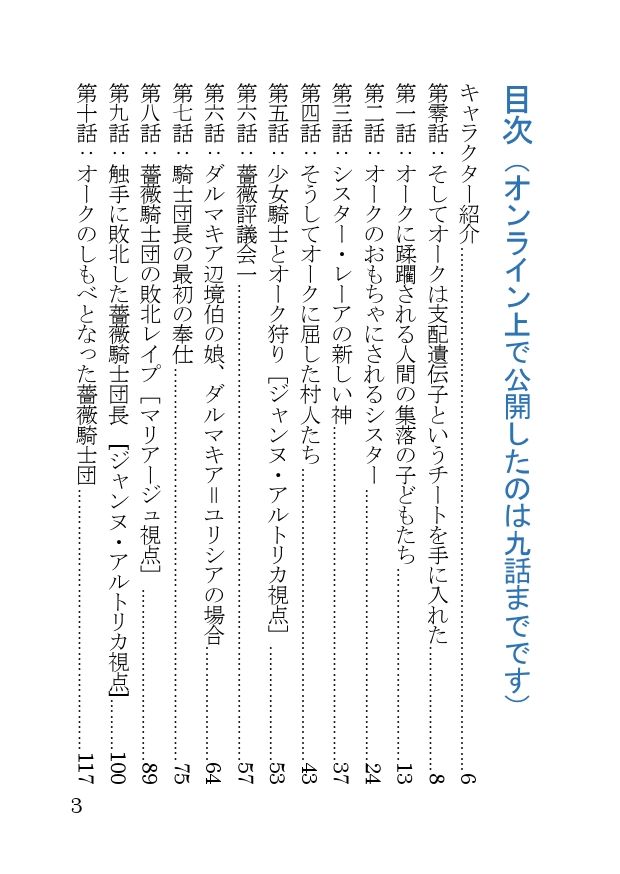 目次（オンライン上で公開したのは九話までです）
キャラクター紹介……6
第零話：そしてオークは支配遺伝子というチートを手に入れた……8
第一話：オークに蹂躙される人間の集落の子どもたち……13
第二話：オークのおもちゃにされるシスター……24
第三話：シスター・レーアの新しい神……37
第四話：そうしてオークに屈した村人たち……43
第五話：少女騎士とオーク狩り［ジャンヌ・アルトリカ視点］……53
第六話：薔薇評議会一……57
第六話：ダルマキア辺境伯の娘、ダルマキア＝ユリシアの場合……64
第七話：騎士団長の最初の奉仕……75
第八話：薔薇騎士団の敗北レイプ［マリアージュ視点］……89
第九話：触手に敗北した薔薇騎士団長［ジャンヌ・アルトリカ視点］……100
第十話：オークのしもべとなった薔薇騎士団……117
3